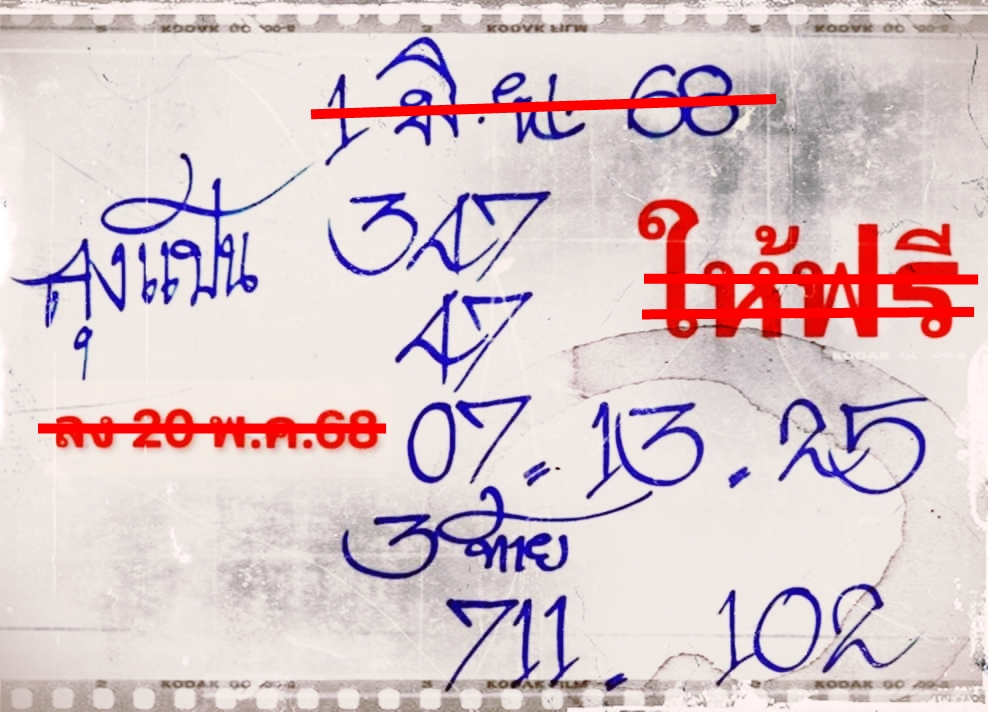 KODAK FILM
1 มิ.ย. 68
ลุงแป๊ะ
347
ให้ฟรี
47
ลง 20 พ.ค.68
07 - 13 . 25
3 ท้าย
711 . 102
KODAK FILM